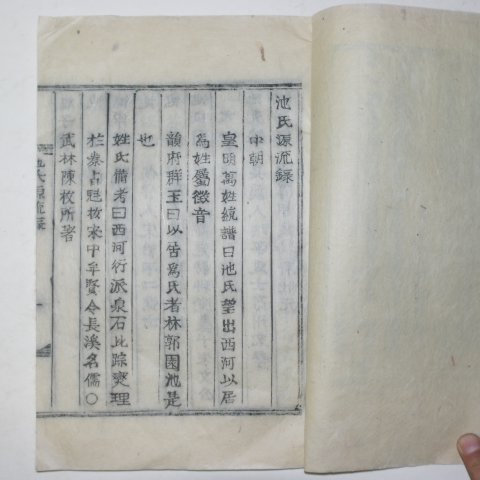 池氏源流錄
中朝
皇明萬姓統譜曰池氏望出西河以居
為姓屬徵音
韻府群玉曰以皆為氏者林郭園池是
也
姓氏備考曰西河衍派泉石比踪燮理
於泰占冠按宋中牟賢令長溪名儒〇
武林陳枚所著
氏源流錄